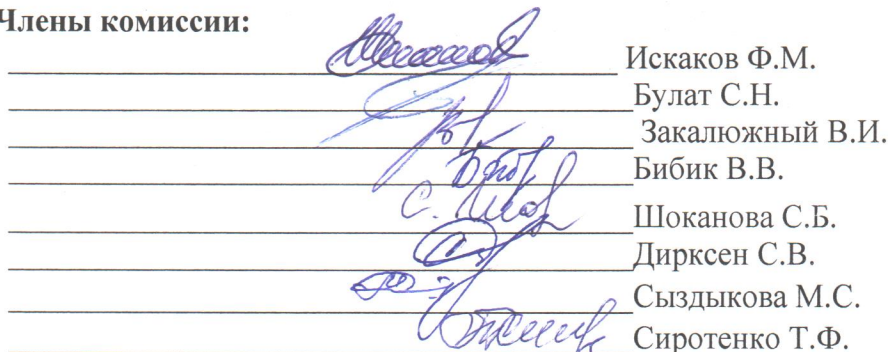 Члены комиссии:
Искаков Ф.М.
Булат С.Н.
Закалюжный В.И.
Бибик В.В.
Шоканова С.Б.
Дирксен С.В.
Сыздыкова М.С.
Сиротенко Т.Ф.